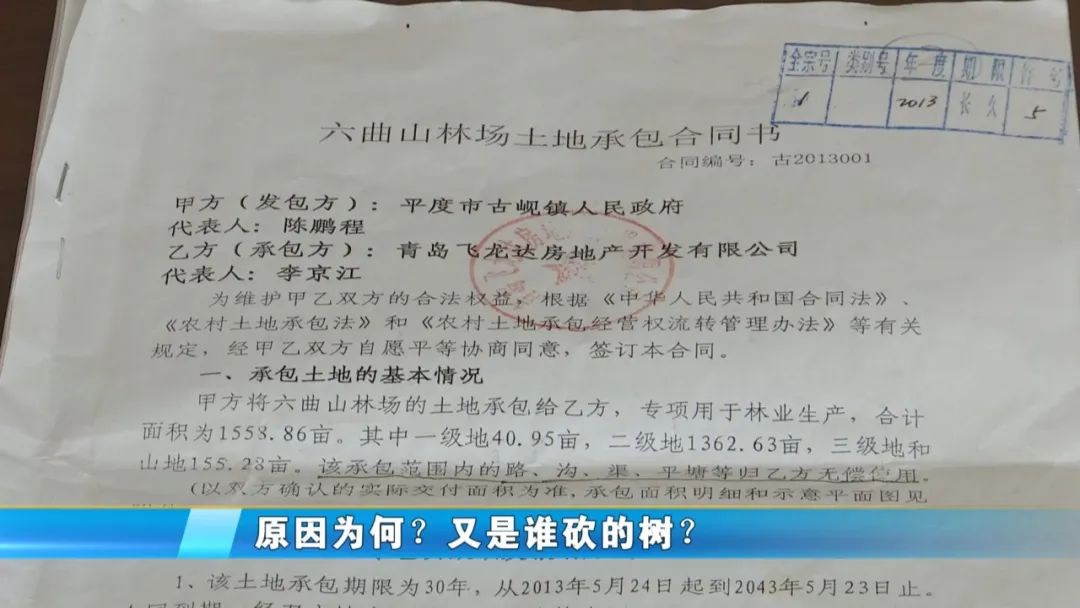 全宗号 类别号 年度 期限 件号
2013 长久 5
六曲山林场土地承包合同书
合同编号：古2013001
甲方（发包方）：平度市古岘镇人民政府
代表人：陈鹏程
乙方（承包方）：青岛飞龙达房地产开发有限公司
代表人：李京江
为维护甲乙双方的合法权益，根据《中华人民共和国合同法》、
《农村土地承包法》和《农村土地承包经营权流转管理办法》等有关
规定，经甲乙双方自愿平等协商同意，签订本合同。
一、承包土地的基本情况
甲方将六曲山林场的土地承包给乙方，专项用于林业生产，合计
面积为1558.86亩。其中一级地40.95亩，二级地1362.63亩，三级地和
山地155.28亩。该承包范围内的路、沟、渠、平塘等归乙方无偿使用。
(以双方确认的实际交付面积为准,承包面积明细和示意平面图见
原因为何？又是谁砍的树？
1、该土地承包期限为30年，从2013年5月24日起到2043年5月23日止。